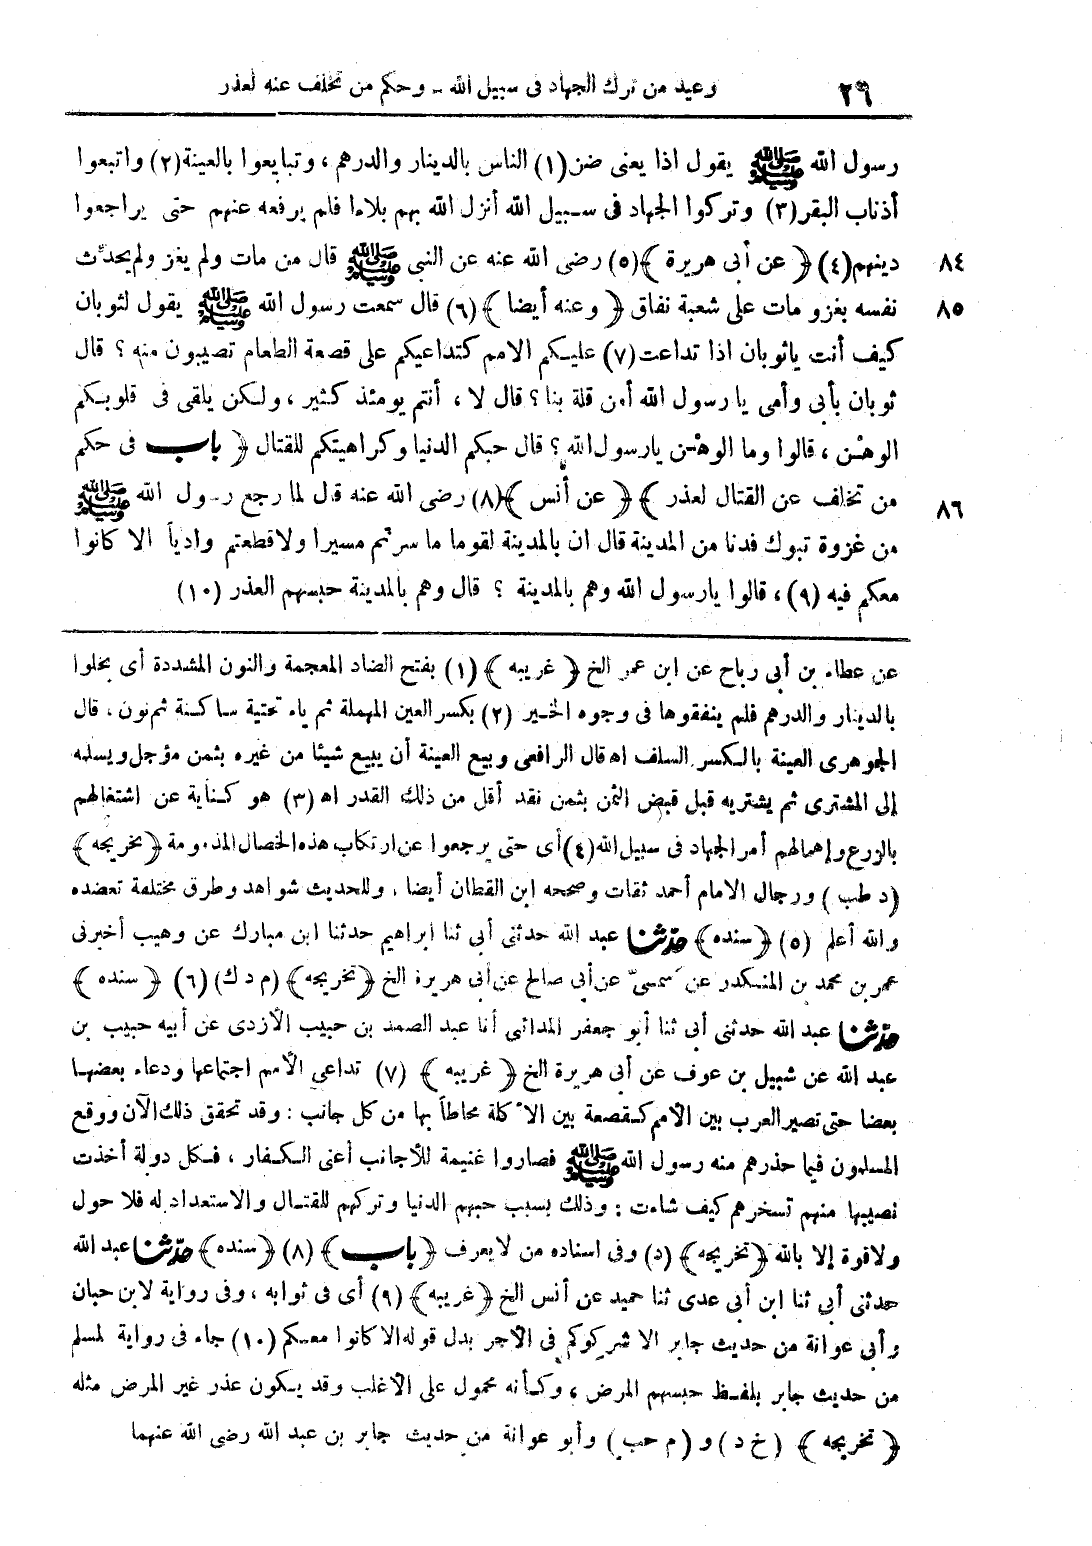 ٢٦ وعيد من ترك الجهاد فى سبيل الله ـ وحكم من تخلف عنه لعذر
رسول الله ﷺ يقول اذا يعنى ضن (١) الناس بالدينار والدرهم ، وتبايعوا بالعينة (٢) واتبعوا
أذناب البقر (٣) وتركوا الجهاد فى سبيل الله أنزل الله بهم بلاءا فلم يرفعه عنهم حتى يراجعوا
٨٤ دينهم (٤) ﴿ عن أبى هريرة ﴾ (٥) رضى الله عنه عن النبى ﷺ قال من مات ولم يغز ولم يحدّث
٨٥ نفسه بغزو مات على شعبة نفاق ﴿ وعنه أيضا ﴾ (٦) قال سمعت رسول الله ﷺ يقول لثوبان
كيف أنت ياثوبان اذا تداعت (٧) عليكم الامم كتداعيكم على قصعة الطعام تصيبون منه ؟ قال
ثوبان بأبى وأمى يا رسول الله أمن قلة بنا ؟ قال لا ، أنتم يومئذ كثير ، ولكن يلقى فى قلوبكم
الوهْن ، قالوا وما الوهْن يارسول الله ؟ قال حبكم الدنيا وكراهيتكم للقتال ﴿ باب فى حكم
٨٦ من تخلف عن القتال لعذر ﴾ ﴿ عن أنس ﴾ (٨) رضى الله عنه قال لما رجع رسول الله ﷺ
من غزوة تبوك فدنا من المدينة قال ان بالمدينة لقوما ما سرتم مسيرا ولا قطعتم وادياً الا كانوا
معكم فيه (٩) ، قالوا يارسول الله وهم بالمدينة ؟ قال وهم بالمدينة حبسهم العذر (١٠)
عن عطاء بن أبى رباح عن ابن عمر الخ ﴿ غريبه ﴾ (١) بفتح الضاد المعجمة والنون المشددة أى بخلوا
بالدينار والدرهم فلم ينفقوها فى وجوه الخير (٢) بكسر العين المهملة ثم ياء تحتية ساكنة ثم نون ، قال
الجوهرى العينة بالكسر السلف اه قال الرافعى وبيع العينة أن يبيع شيئا من غيره بثمن مؤجل ويسلمه
إلى المشترى ثم يشتريه قبل قبض الثمن بثمن نقد أقل من ذلك القدر اه (٣) هو كناية عن اشتغالهم
بالزرع وإهمالهم أمر الجهاد فى سبيل الله (٤) أى حتى يرجعوا عن ارتكاب هذه الخصال المذمومة ﴿ تخريجه ﴾
(د طب) ورجال الامام أحمد ثقات وصححه ابن القطان أيضا ، وللحديث شواهد وطرق مختلفة تعضده
والله أعلم (٥) ﴿ سنده ﴾ حدّثنا عبد الله حدثنى أبى ثنا ابراهيم حدثنا ابن مبارك عن وهيب أخبرنى
عمر بن محمد بن المنكدر عن سمىّ عن أبى صالح عن أبى هريرة الخ ﴿ تخريجه ﴾ (م د ك) (٦) ﴿ سنده ﴾
حدّثنا عبد الله حدثنى أبى ثنا أبو جعفر المدائنى أنا عبد الصمد بن حبيب الأزدى عن أبيه حبيب بن
عبد الله عن شبيل بن عوف عن أبى هريرة الخ ﴿ غريبه ﴾ (٧) تداعى الأمم اجتماعها ودعاء بعضها
بعضا حتى تصير العرب بين الأمم كقصعة بين الأكلة محاطاً بها من كل جانب : وقد تحقق ذلك الآن ووقع
المسلمون فيما حذرهم منه رسول الله ﷺ فصاروا غنيمة للأجانب أعنى الكفار ، فكل دولة أخذت
نصيبها منهم تسخرهم كيف شاءت : وذلك بسبب حبهم الدنيا وتركهم للقتال والاستعداد له فلا حول
ولا قوة إلا بالله ﴿ تخريجه ﴾ (د) وفى اسناده من لا يعرف ﴿ باب ﴾ (٨) ﴿ سنده ﴾ حدّثنا عبد الله
حدثنى أبى ثنا ابن أبى عدى ثنا حميد عن أنس الخ ﴿ غريبه ﴾ (٩) أى فى ثوابه ، وفى رواية لابن حبان
وأبى عوانة من حديث جابر الا شركوكم فى الأجر بدل قوله الا كانوا معكم (١٠) جاء فى رواية لمسلم
من حديث جابر بلفظ حبسهم المرض ، وكأنه محمول على الأغلب وقد يكون عذر غير المرض مثله
﴿ تخريجه ﴾ (خ د) و (م حب) وأبو عوانة من حديث جابر بن عبد الله رضى الله عنهما